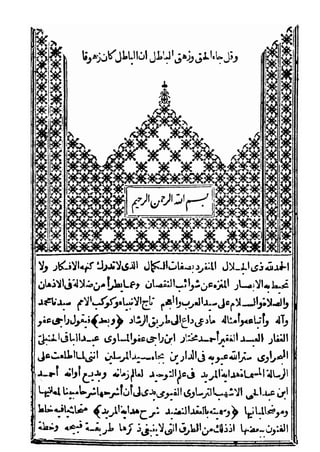 وقل جاء الحق وزهق الباطل ان الباطل كان زهوقا
بسم الله الرحمن الرحيم
الحمد لله ذى الجلال المنفرد بصفات الكمال الذى لا تدرك كنهه الافكار ولا
تحيط به الابصار المنزه عن شوائب النقصان وعما يطرأ من ضلالة فى الاذهان
والصلاة والسلام على سيد العرب والعجم تاج الانبياء وكوكب الامم سيدنا محمد
وآله وأتباعه وأمثاله ما دعى داع الى طريق الرشاد (وبعد) فيقول راجى عفو
الغفار العبد الفقير أحمد مختار ابن راجى عفو المساوى عبد الباقى الحنبلى
البحراوى ستر الله عيوبه فى الدارين بجاه سيد المرسلين اننى لما اطلعت على
الرسالة المسماة هداية المريد فى علم التوحيد لعالم زمانه وبديع أوانه أحمد
ابن عبد الحى الاشهب الترساوى الفيومى بدى لى أن أشرحها شرحا مبينا لمعانيها
وموضحا لمبانيها (وسميته بالعقد النضيد شرح هداية المريد) متحاشيا فيه خلط
الفنون ببعضها اذ ذلك من الطرق التى لا ينبغى ذكرها طريقة قبيحة وخطة